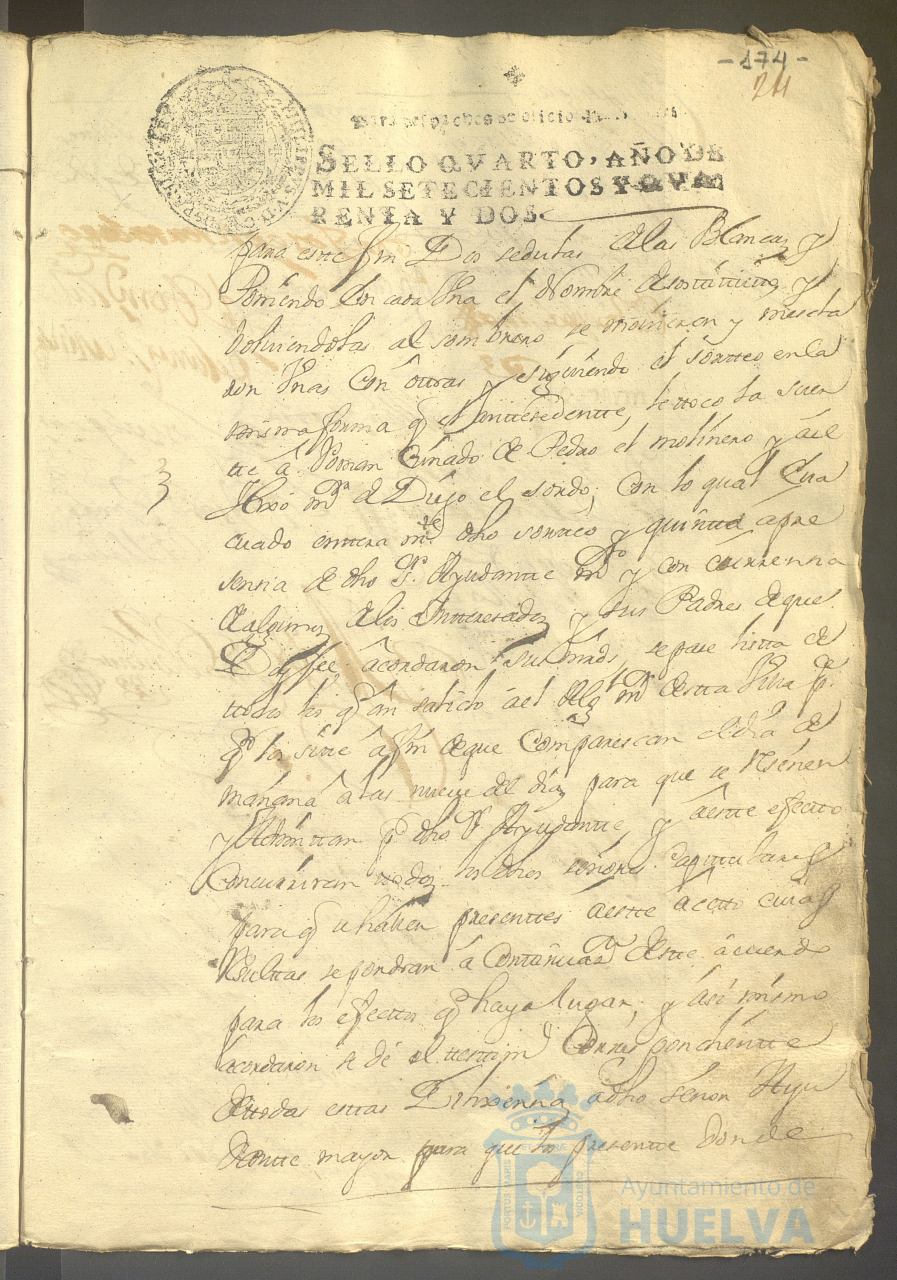 -174-
24
Para despachos de oficio
SELLO QVARTO, AÑO DE
MIL SETECIENTOS Y QVA
RENTA Y DOS
para este fin Dos sedulas de las Blancas y
Poniendo en cada una el Nombre y
volviendolas al sombrero se movieron y mescla
don unas con otras y siguiendo el sorteo en la
misma forma q el antecedente, le toco la suer
te a Roman Cuñado de Pedro el molinero y a el
Hixo de Diego el sordo, con lo qual
dho sorteo y quinta a pre
sensia de dho Sr. Ayudante y con
de algunos de los Interesados y sus Padres de que
Doy fee acordaron sus mds, se pase lista de
todos los q an salido a el de esta Villa
q los site a fin de que Comparescan el dia de
mañana a las nueve del dia para que se
y Admitan p dho Sr Ayudante, y a este efecto
Concurriran todos los dhos señores Capitulares
para q se hallen presentes a este acto cuias
Resultas se pondran a Continuaz.on de este acuerdo
para los efectos q haya lugar, y asi mismo
acordaron se dé el testim.o Correspondiente
de todas estas a dho señor Ayu
dante mayor para que lo presente donde
PORTUS MARIS
ET TERRE
CUSTODIA
Ayuntamiento de
HUELVA